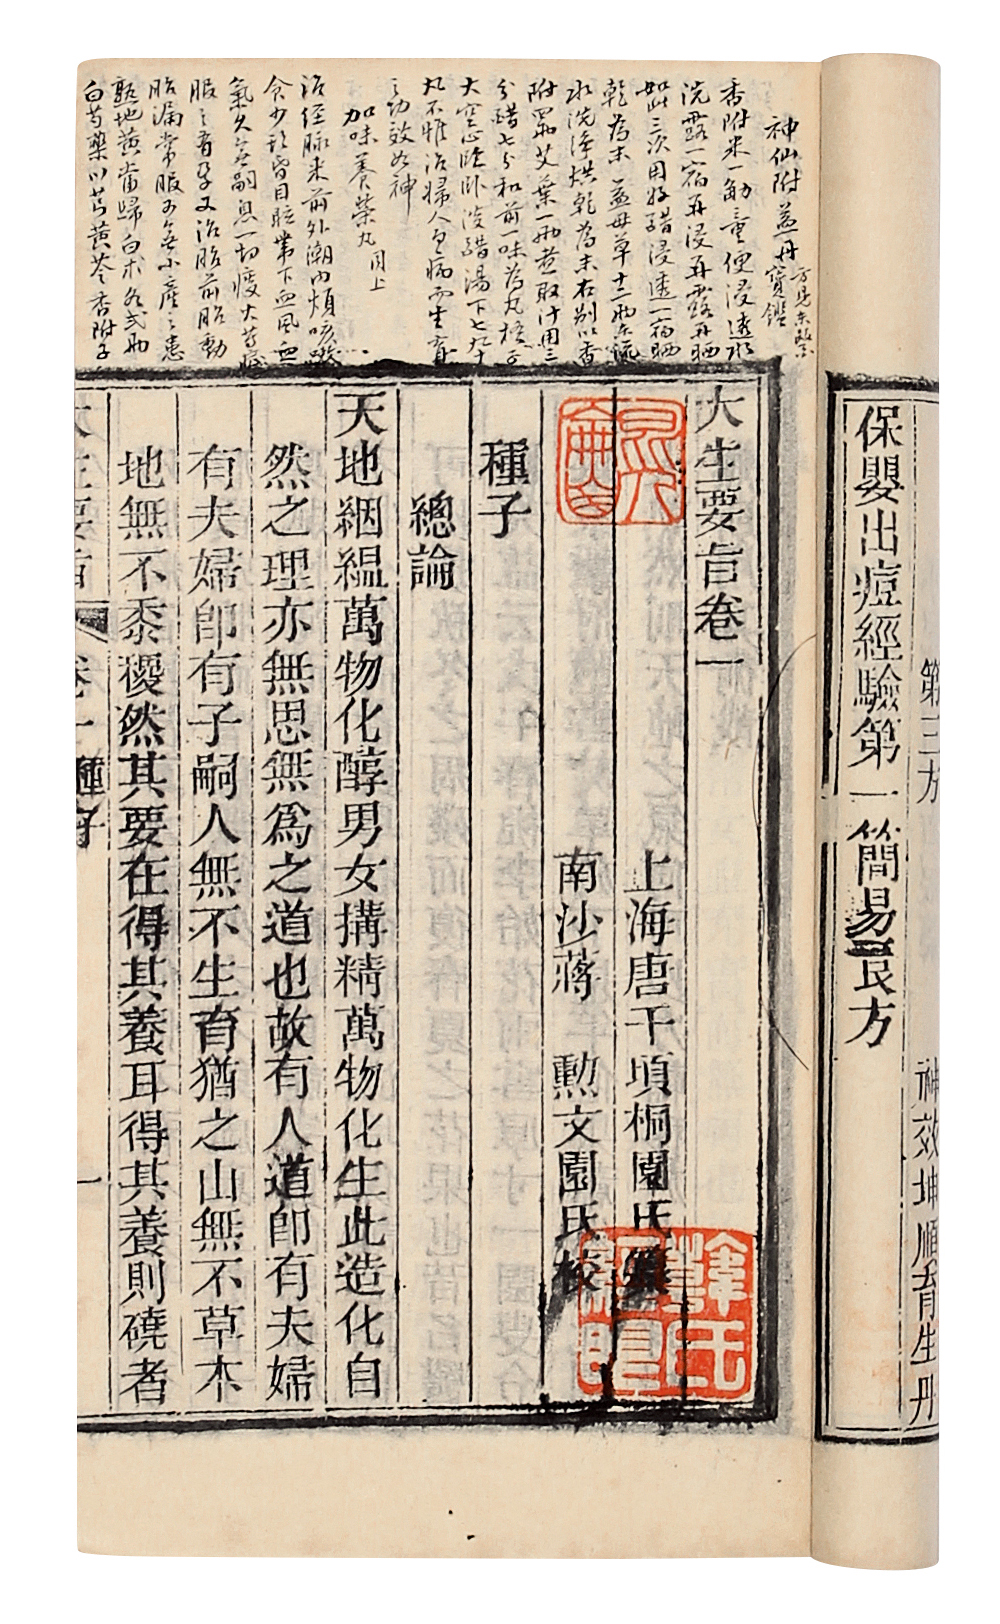 第三方
神效坤順育生丹
保嬰出痘經驗第一簡易良方
神仙附益丹
方見東醫
寶鑑
香附米一觔童便浸透水
洗露一宿再浸再露再晒
如此三次用好醋浸透一宿晒
乾為末益母草十二兩東流
水洗淨烘乾為末右別以香
附四兩艾葉一兩煮取汁用三
分醋七分和前一味為丸梧子
大空心臨臥淡醋湯下七九十
丸不惟治婦人百病而生育
之功效如神
加味養榮丸 同上
治經脉來前外潮內煩咳嗽
食少頭昏目眩帶下血風血
氣久無嗣息一切痰火等症
服之有孕又治胎前胎動
胎漏常服可無小產之患
熟地黃當歸白朮各弍兩
白芍藥川芎黃芩香附子
大生要旨卷一
上海唐千頃桐園氏纂
南沙蔣 勲文園氏校
種子
總論
天地絪緼萬物化醇男女搆精萬物化生此造化自
然之理亦無思無爲之道也故有人道卽有夫婦
有夫婦卽有子嗣人無不生育猶之山無不草木
地無不黍稷然其要在得其養耳得其養則磽者
大生要旨 卷一種子 一